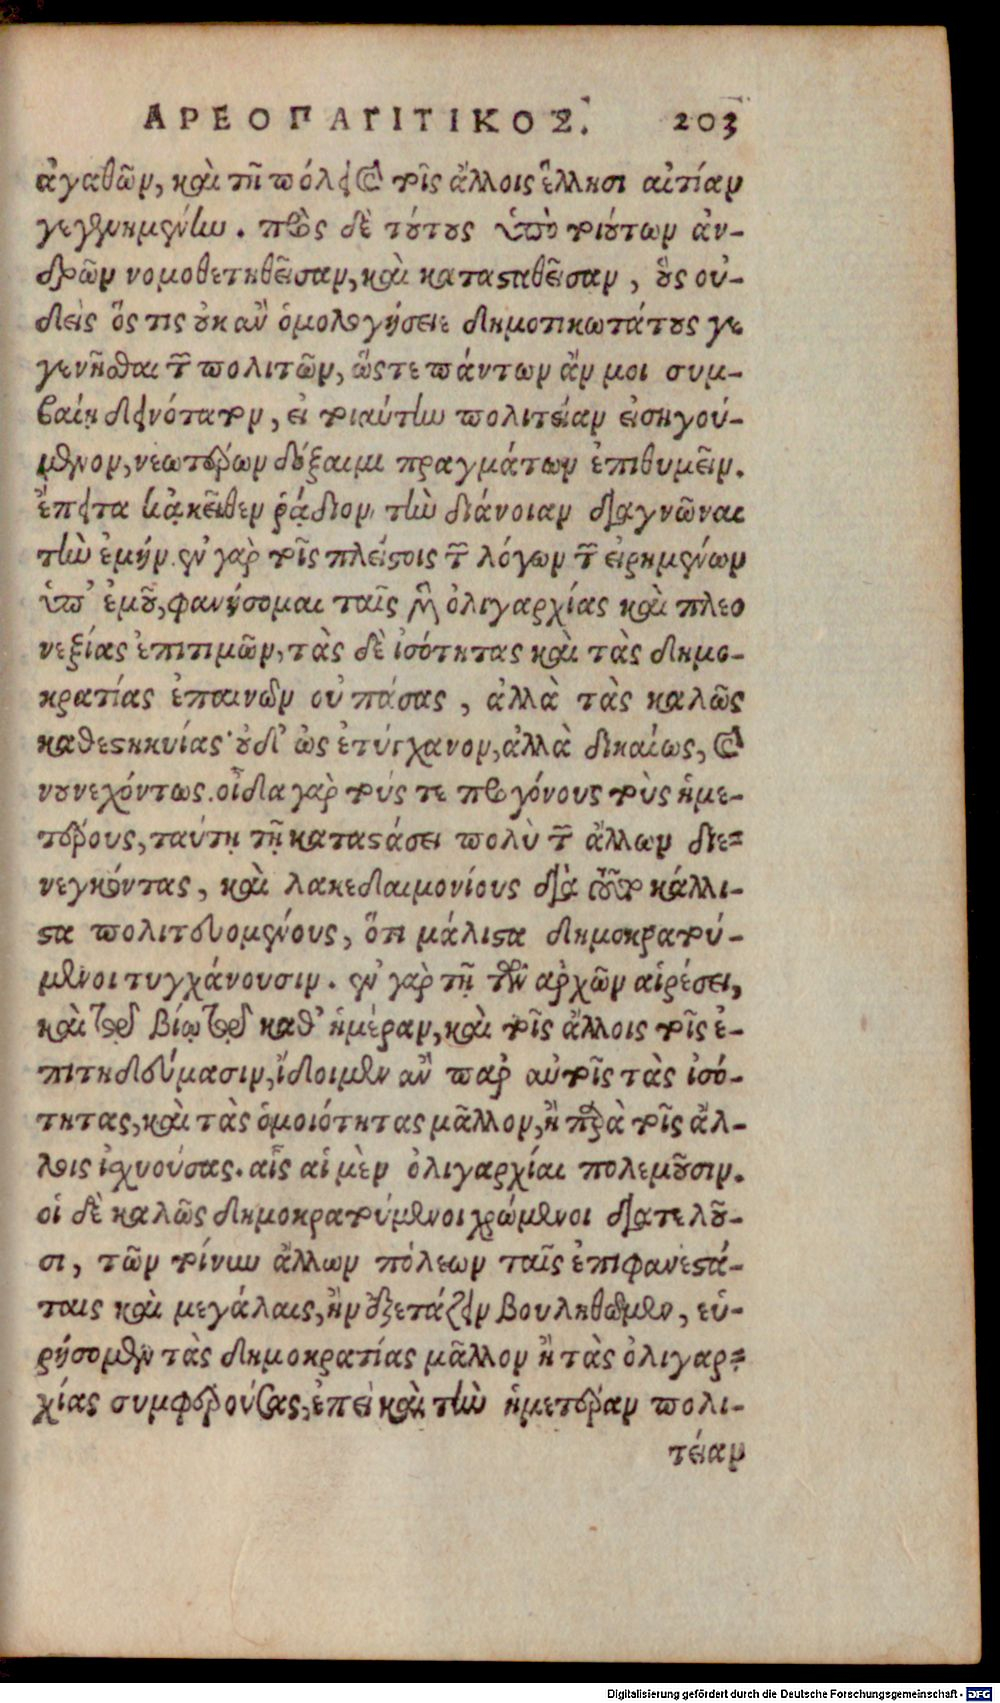 ΑΡΕΟΠΑΓΙΤΙΚΟΣ. 203
ἀγαθῶν, καὶ τῇ πόλει καὶ τοῖς ἄλλοις ἕλλησι αἰτίαν
γεγενημένην. πρὸς δὲ τούτους ὑπὸ τοιούτων ἀν-
δρῶν νομοθετηθεῖσαν, καὶ κατασταθεῖσαν, οὓς οὐ-
δεὶς ὅς τις οὐκ ἂν ὁμολογήσειε δημοτικωτάτους γε
γενῆσθαι τῶν πολιτῶν, ὥστε πάντων ἄν μοι συμ-
βαίη δεινότατον, εἰ τοιαύτην πολιτείαν εἰσηγού-
μενον, νεωτέρων δόξαιμι πραγμάτων ἐπιθυμεῖν.
ἔπειτα κἀκεῖθεν ῥᾴδιον τὴν διάνοιαν διαγνῶναι
τὴν ἐμήν. ἐν γὰρ τοῖς πλείστοις τῶν λόγων τῶν εἰρημένων
ὑπ' ἐμοῦ, φανήσομαι ταῖς μὲν ὀλιγαρχίας καὶ πλεο
νεξίας ἐπιτιμῶν, τὰς δὲ ἰσότητας καὶ τὰς δημο-
κρατίας ἐπαινῶν οὐ πάσας, ἀλλὰ τὰς καλῶς
καθεστηκυίας· οὐδ' ὡς ἐτύγχανον, ἀλλὰ δικαίως, καὶ
νουνεχόντως. οἶδα γὰρ τούς τε προγόνους τοὺς ἡμε-
τέρους, ταύτῃ τῇ καταστάσει πολὺ τῶν ἄλλων διε-
νεγκόντας, καὶ λακεδαιμονίους διὰ τοῦτο κάλλι-
στα πολιτευομένους, ὅτι μάλιστα δημοκρατού-
μενοι τυγχάνουσιν. ἐν γὰρ τῇ τῶν ἀρχῶν αἱρέσει,
καὶ τῷ βίῳ τῷ καθ' ἡμέραν, καὶ τοῖς ἄλλοις τοῖς ἐ-
πιτηδεύμασιν, ἴδοιμεν ἂν παρ' αὐτοῖς τὰς ἰσό-
τητας, καὶ τὰς ὁμοιότητας μᾶλλον, ἢ παρὰ τοῖς ἄλ-
λοις ἰσχυούσας. αἷς αἱ μὲν ὀλιγαρχίαι πολεμοῦσιν.
οἱ δὲ καλῶς δημοκρατούμενοι χρώμενοι διατελοῦ-
σι, τῶν τοίνυν ἄλλων πόλεων ταῖς ἐπιφανεστά-
ταις καὶ μεγάλαις, ἢν ἐξετάζειν βουληθῶμεν, εὑ-
ρήσομεν τὰς δημοκρατίας μᾶλλον ἢ τὰς ὀλιγαρ-
χίας συμφερούσας, ἐπεὶ καὶ τὴν ἡμετέραν πολι-
τείαν
Digitalisierung gefördert durch die Deutsche Forschungsgemeinschaft - DFG